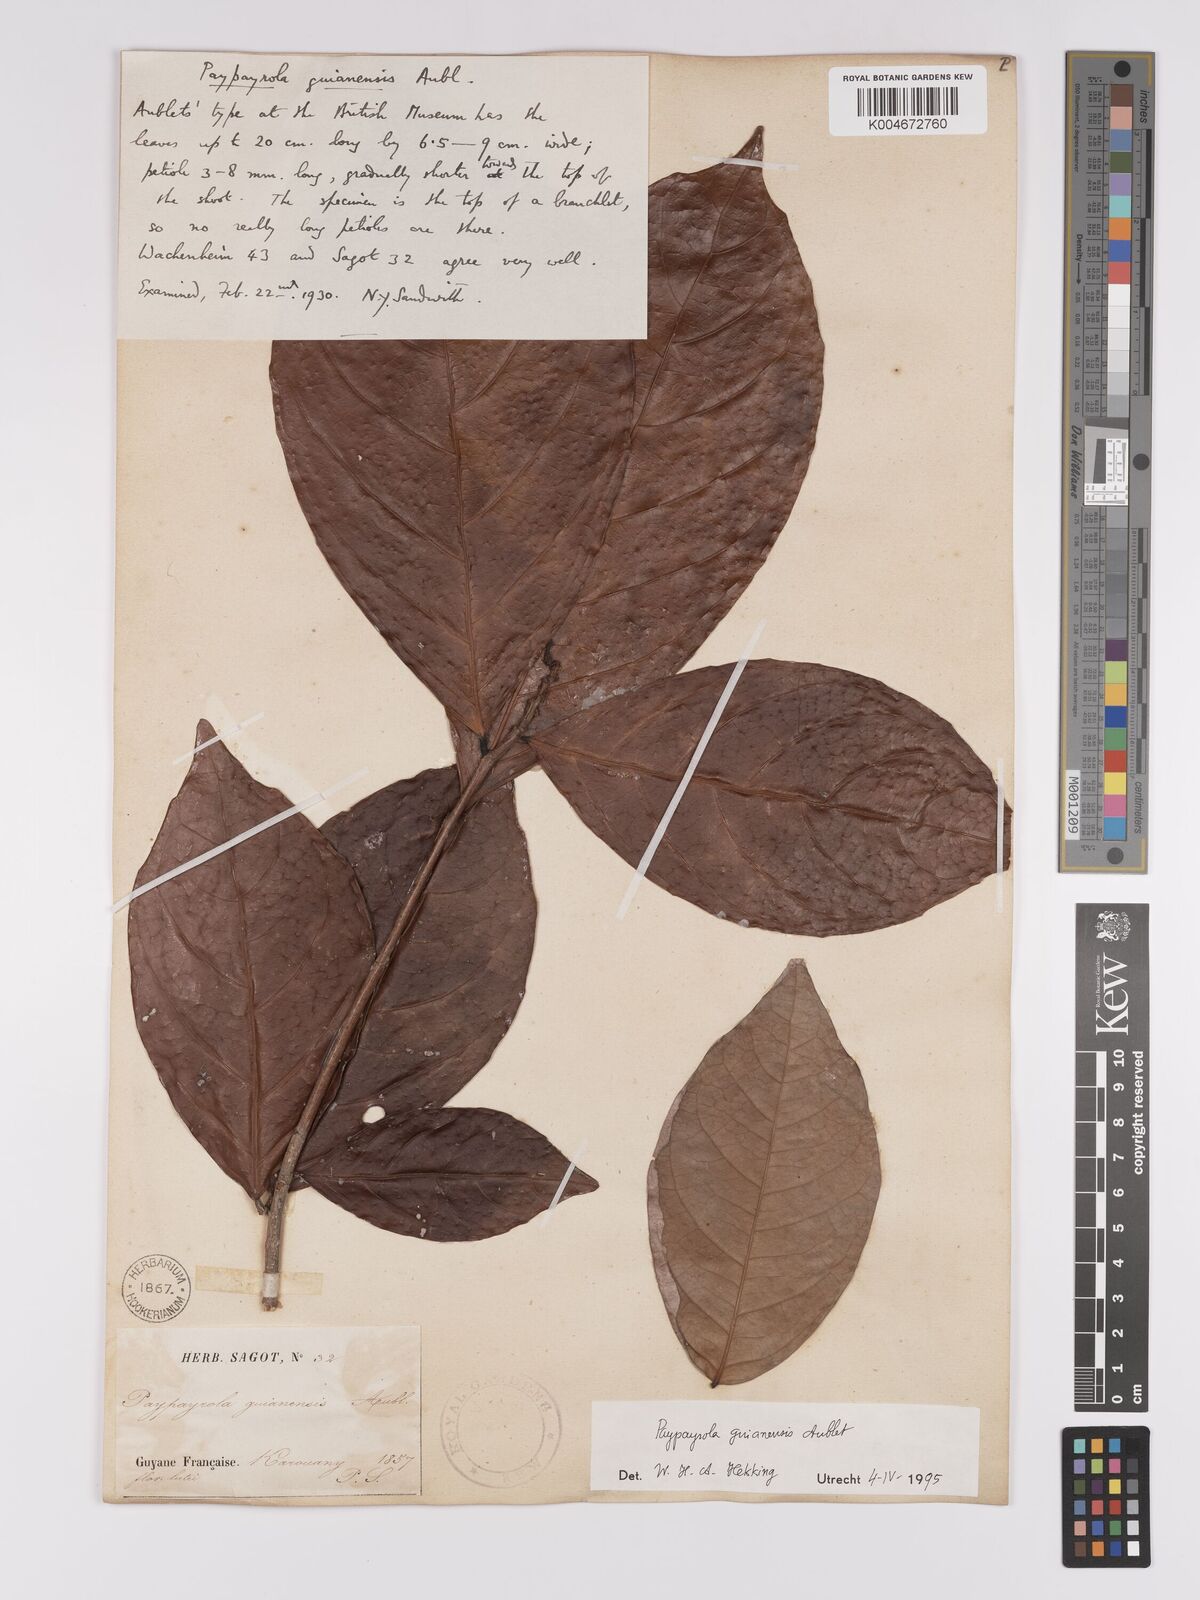 Paypayrola guianensis Aubl.
Aublets' type at the British Museum has the
leaves up to 20 cm. long by 6.5 — 9 cm. wide;
petiole 3-8 mm. long, gradually shorter at towards the top of
the shoot. The specimen is the top of a branchlet,
so no really long petioles are there.
Wachenheim 43 and Sagot 32 agree very well.
Examined, Feb. 22nd. 1930. N.Y. Sandwith.
P
ROYAL BOTANIC GARDENS KEW
K004672760
HERBARIUM
1867.
HOOKERIANUM
HERB. SAGOT, No 32
Paypayrola guianensis Aubl.
Guyane Française. Karouany 1857
flor. lutei P. S.
Paypayrola guianensis Aublet
Det. W. H. A. Hekking Utrecht 4-IV-1995
inches
Don Williams
M001209
centimeters
Royal Botanic Gardens
Kew
0 1 2 3 4 5 6 7 8 9 10
cm
copyright reserved